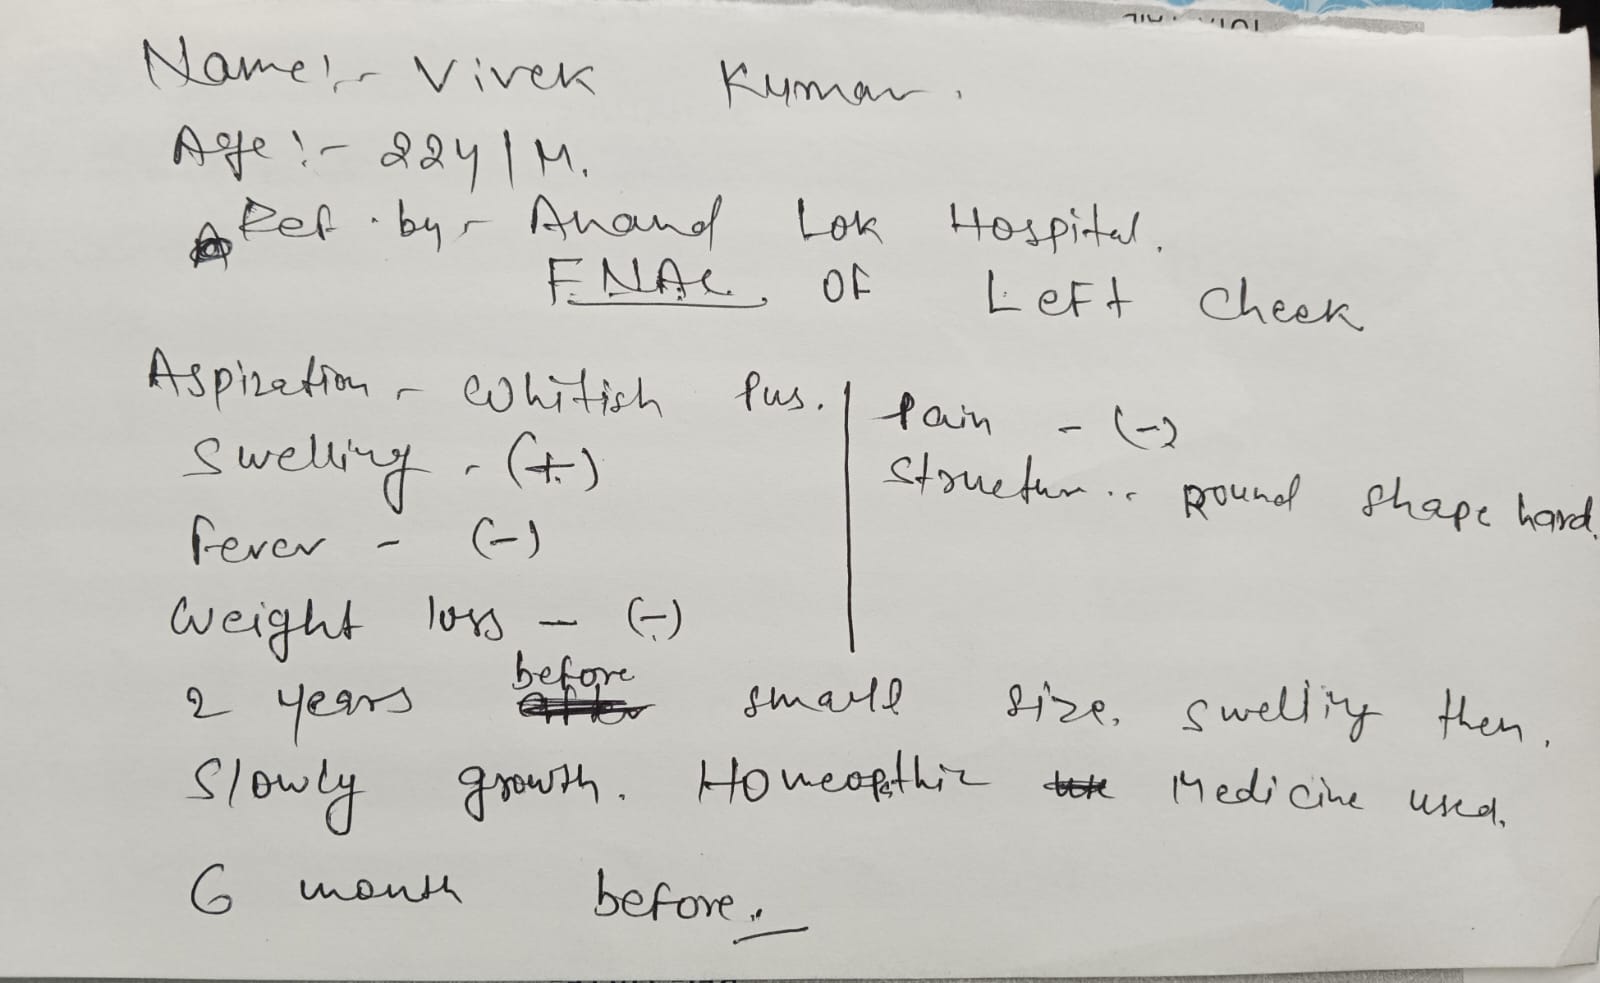 Name:- Vivek Kumar.
Age:- 22y/M.
Ref. by- Anand Lok Hospital.
F.NAC. OF Left Cheek
Aspiration - Whitish Pus.
Swelling - (+)
Fever - (-)
Weight loss - (-)
Pain - (-)
Structur.. Round shape hard.
2 years before small size. swelling then.
Slowly growth. Homeopathic Medicine used.
6 month before.